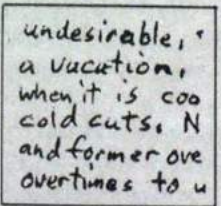 undesirable, "
a vacation,
when it is coo
cold cuts. N
and former ove
overtimes to u